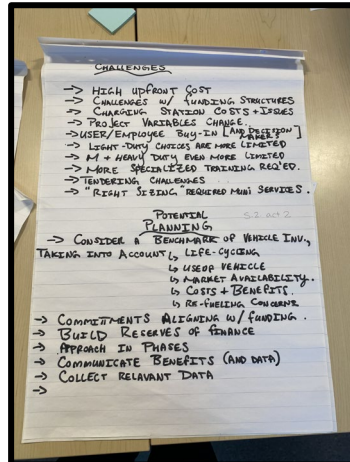 CHALLENGES
→ HIGH UPFRONT COST
→ CHALLENGES W/ FUNDING STRUCTURES
→ CHARGING STATION COSTS + ISSUES
→ PROJECT VARIABLES CHANGE.
→ USER/EMPLOYEE BUY-IN [AND DECISION MAKERS]
→ LIGHT-DUTY CHOICES ARE MORE LIMITED
→ M + HEAVY DUTY EVEN MORE LIMITED
→ MORE SPECIALIZED TRAINING REQ'ED.
→ TENDERING CHALLENGES
→ "RIGHT SIZING" REQUIRED MUNI SERVICES.
POTENTIAL
PLANNING
S.2 act 2
→ CONSIDER A BENCHMARK OF VEHICLE INV.,
TAKING INTO ACCOUNT ↳ LIFE-CYCLING
↳ USE OF VEHICLE
↳ MARKET AVAILABILITY.
↳ COSTS + BENEFITS.
↳ RE-FUELING CONCERNS
→ COMMITMENTS ALIGNING W/ FUNDING.
→ BUILD RESERVES OF FINANCE
→ APPROACH IN PHASES
→ COMMUNICATE BENEFITS (AND DATA)
→ COLLECT RELAVANT DATA
→